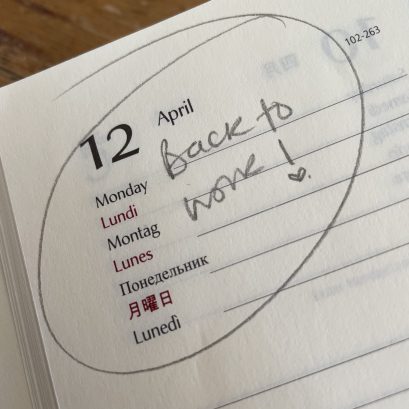 102-263
12 April
Back to
work!
Monday
Lundi
Montag
Lunes
Понедельник
月曜日
Lunedì